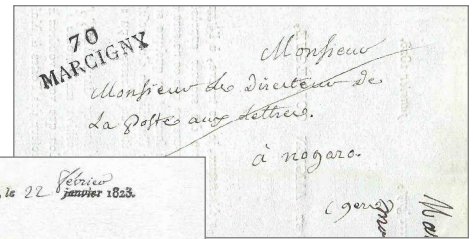 70
MARCIGNY
Monsieur
Monsieur Le Directeur de
La Poste aux Lettres.
à nogaro.
(gers
, le 22 février janvier 1823.